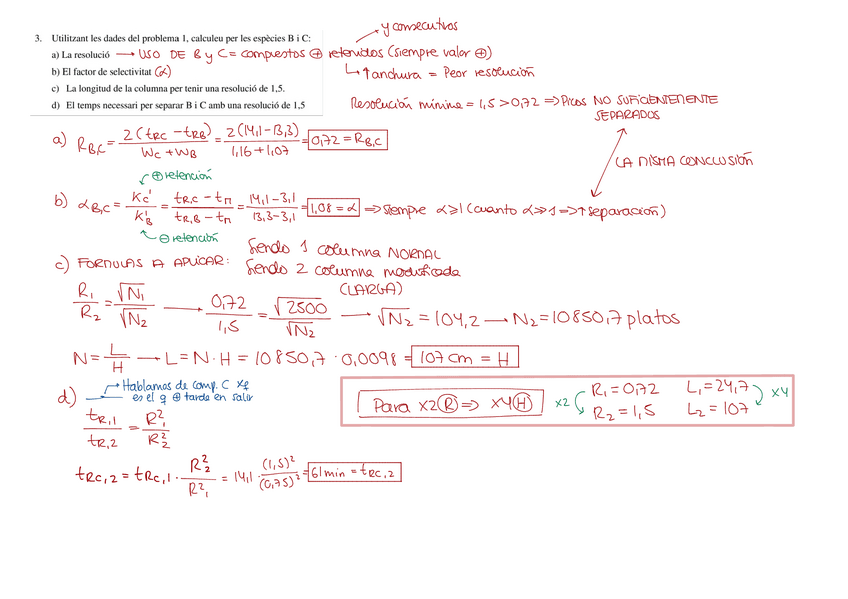 y consecutivos
3. Utilitzant les dades del problema 1, calculeu per les espècies B i C:
a) La resolució → USO DE B y C = compuestos ⊕ retenidos (siempre valor ⊕)
b) El factor de selectivitat (α)
↳ ↑ anchura = Peor resolución
c) La longitud de la columna per tenir una resolució de 1,5.
d) El temps necessari per separar B i C amb una resolució de 1,5
Resolución mínima = 1,5 > 0,72 => Picos NO SUFICIENTEMENTE SEPARADOS
a) R_B,C = 2(tRC - tRB) / (WC + WB) = 2(14,1 - 13,3) / (1,16 + 1,07) = 0,72 = R_B,C
LA MISMA CONCLUSIÓN
⊕ retención
b) α_B,C = KC' / KB' = (tR,C - tM) / (tR,B - tM) = (14,1 - 3,1) / (13,3 - 3,1) = 1,08 = α => Siempre α ≥ 1 (cuanto α >> 1 => ↑ separación)
⊖ retención
c) FORMULAS A APLICAR:
Siendo 1 columna NORMAL
Siendo 2 columna modificada
(LARGA)
R1 / R2 = √N1 / √N2 → 0,72 / 1,5 = √2500 / √N2 → √N2 = 104,2 → N2 = 10850,7 platos
N = L / H → L = N · H = 10850,7 · 0,0098 = 107 cm = H
d) Hablamos de comp. C xq
es el q ⊕ tarde en salir
Para x2 (R) => x4 (H)
x2
R1 = 0,72
R2 = 1,5
L1 = 24,7
L2 = 107
x4
tR,1 / tR,2 = R²1 / R²2
tRC,2 = tRC,1 · R²2 / R²1 = 14,1 · (1,5)² / (0,75)² = 61 min = tRC,2